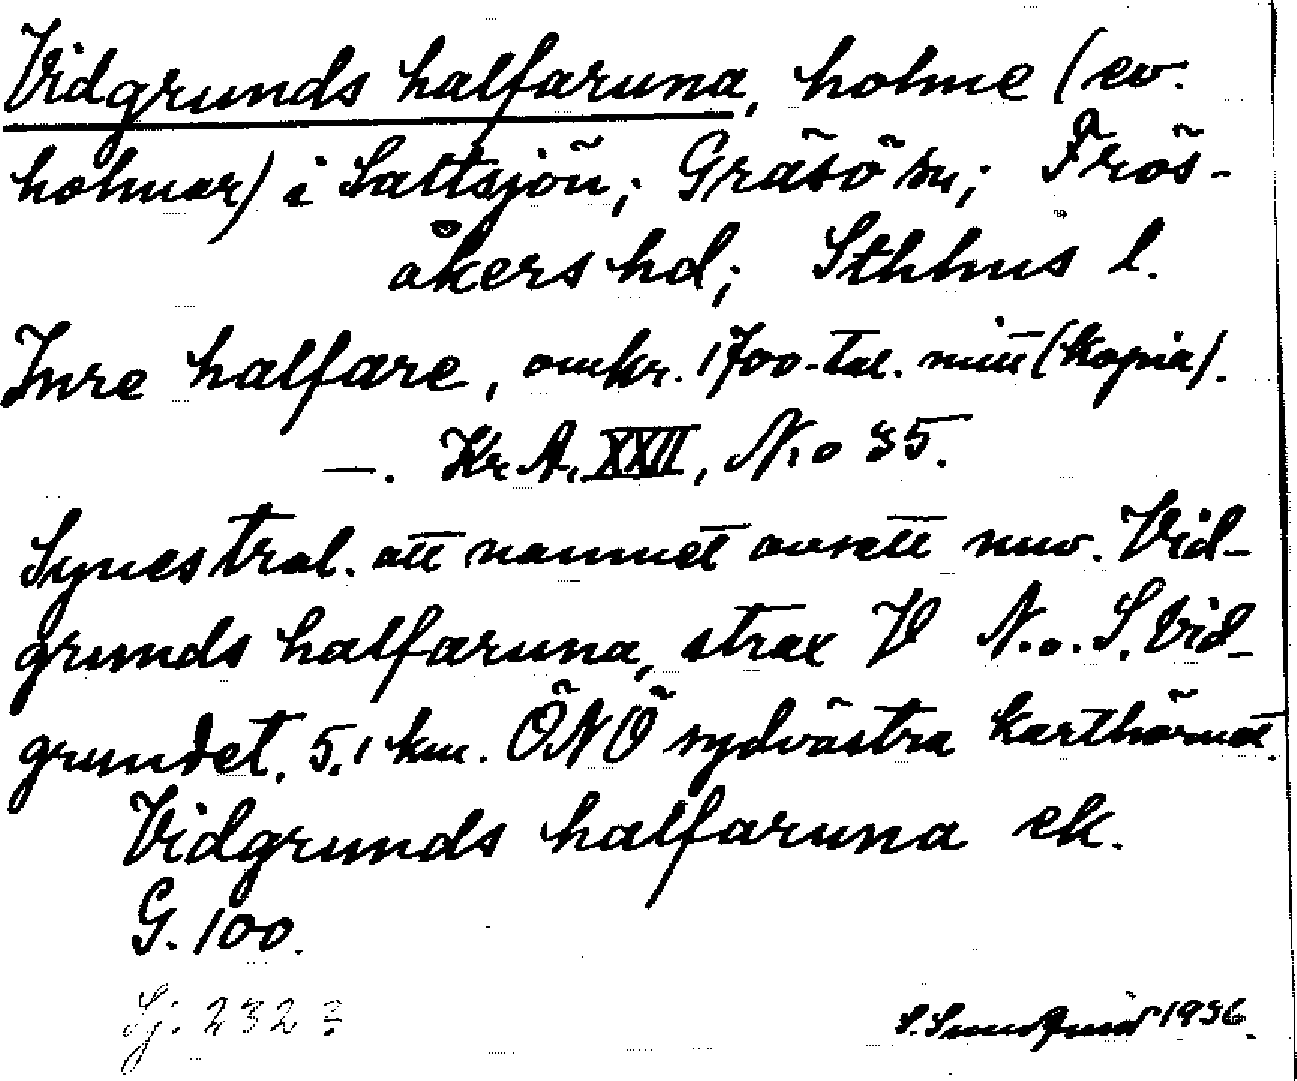 Vidgrunds halfaruna, holme (ev.
holmar) i Saltsjön; Gräsö sn; Frös-
åkers hd; Sthlms l.
Inre halfare, omkr. 1700-tal. mitt (Kopia).
—. Kr.A. XXII, N:o 35.
Synes trol. att namnet avsett nuv. Vid-
grunds halfaruna, strax V N.o. S. Vid-
grundet, 5,1 km. ÖNÖ sydvästra karthörnet.
Vidgrunds halfaruna ek.
G. 100.
Sj. 232 ?
S. 1936.